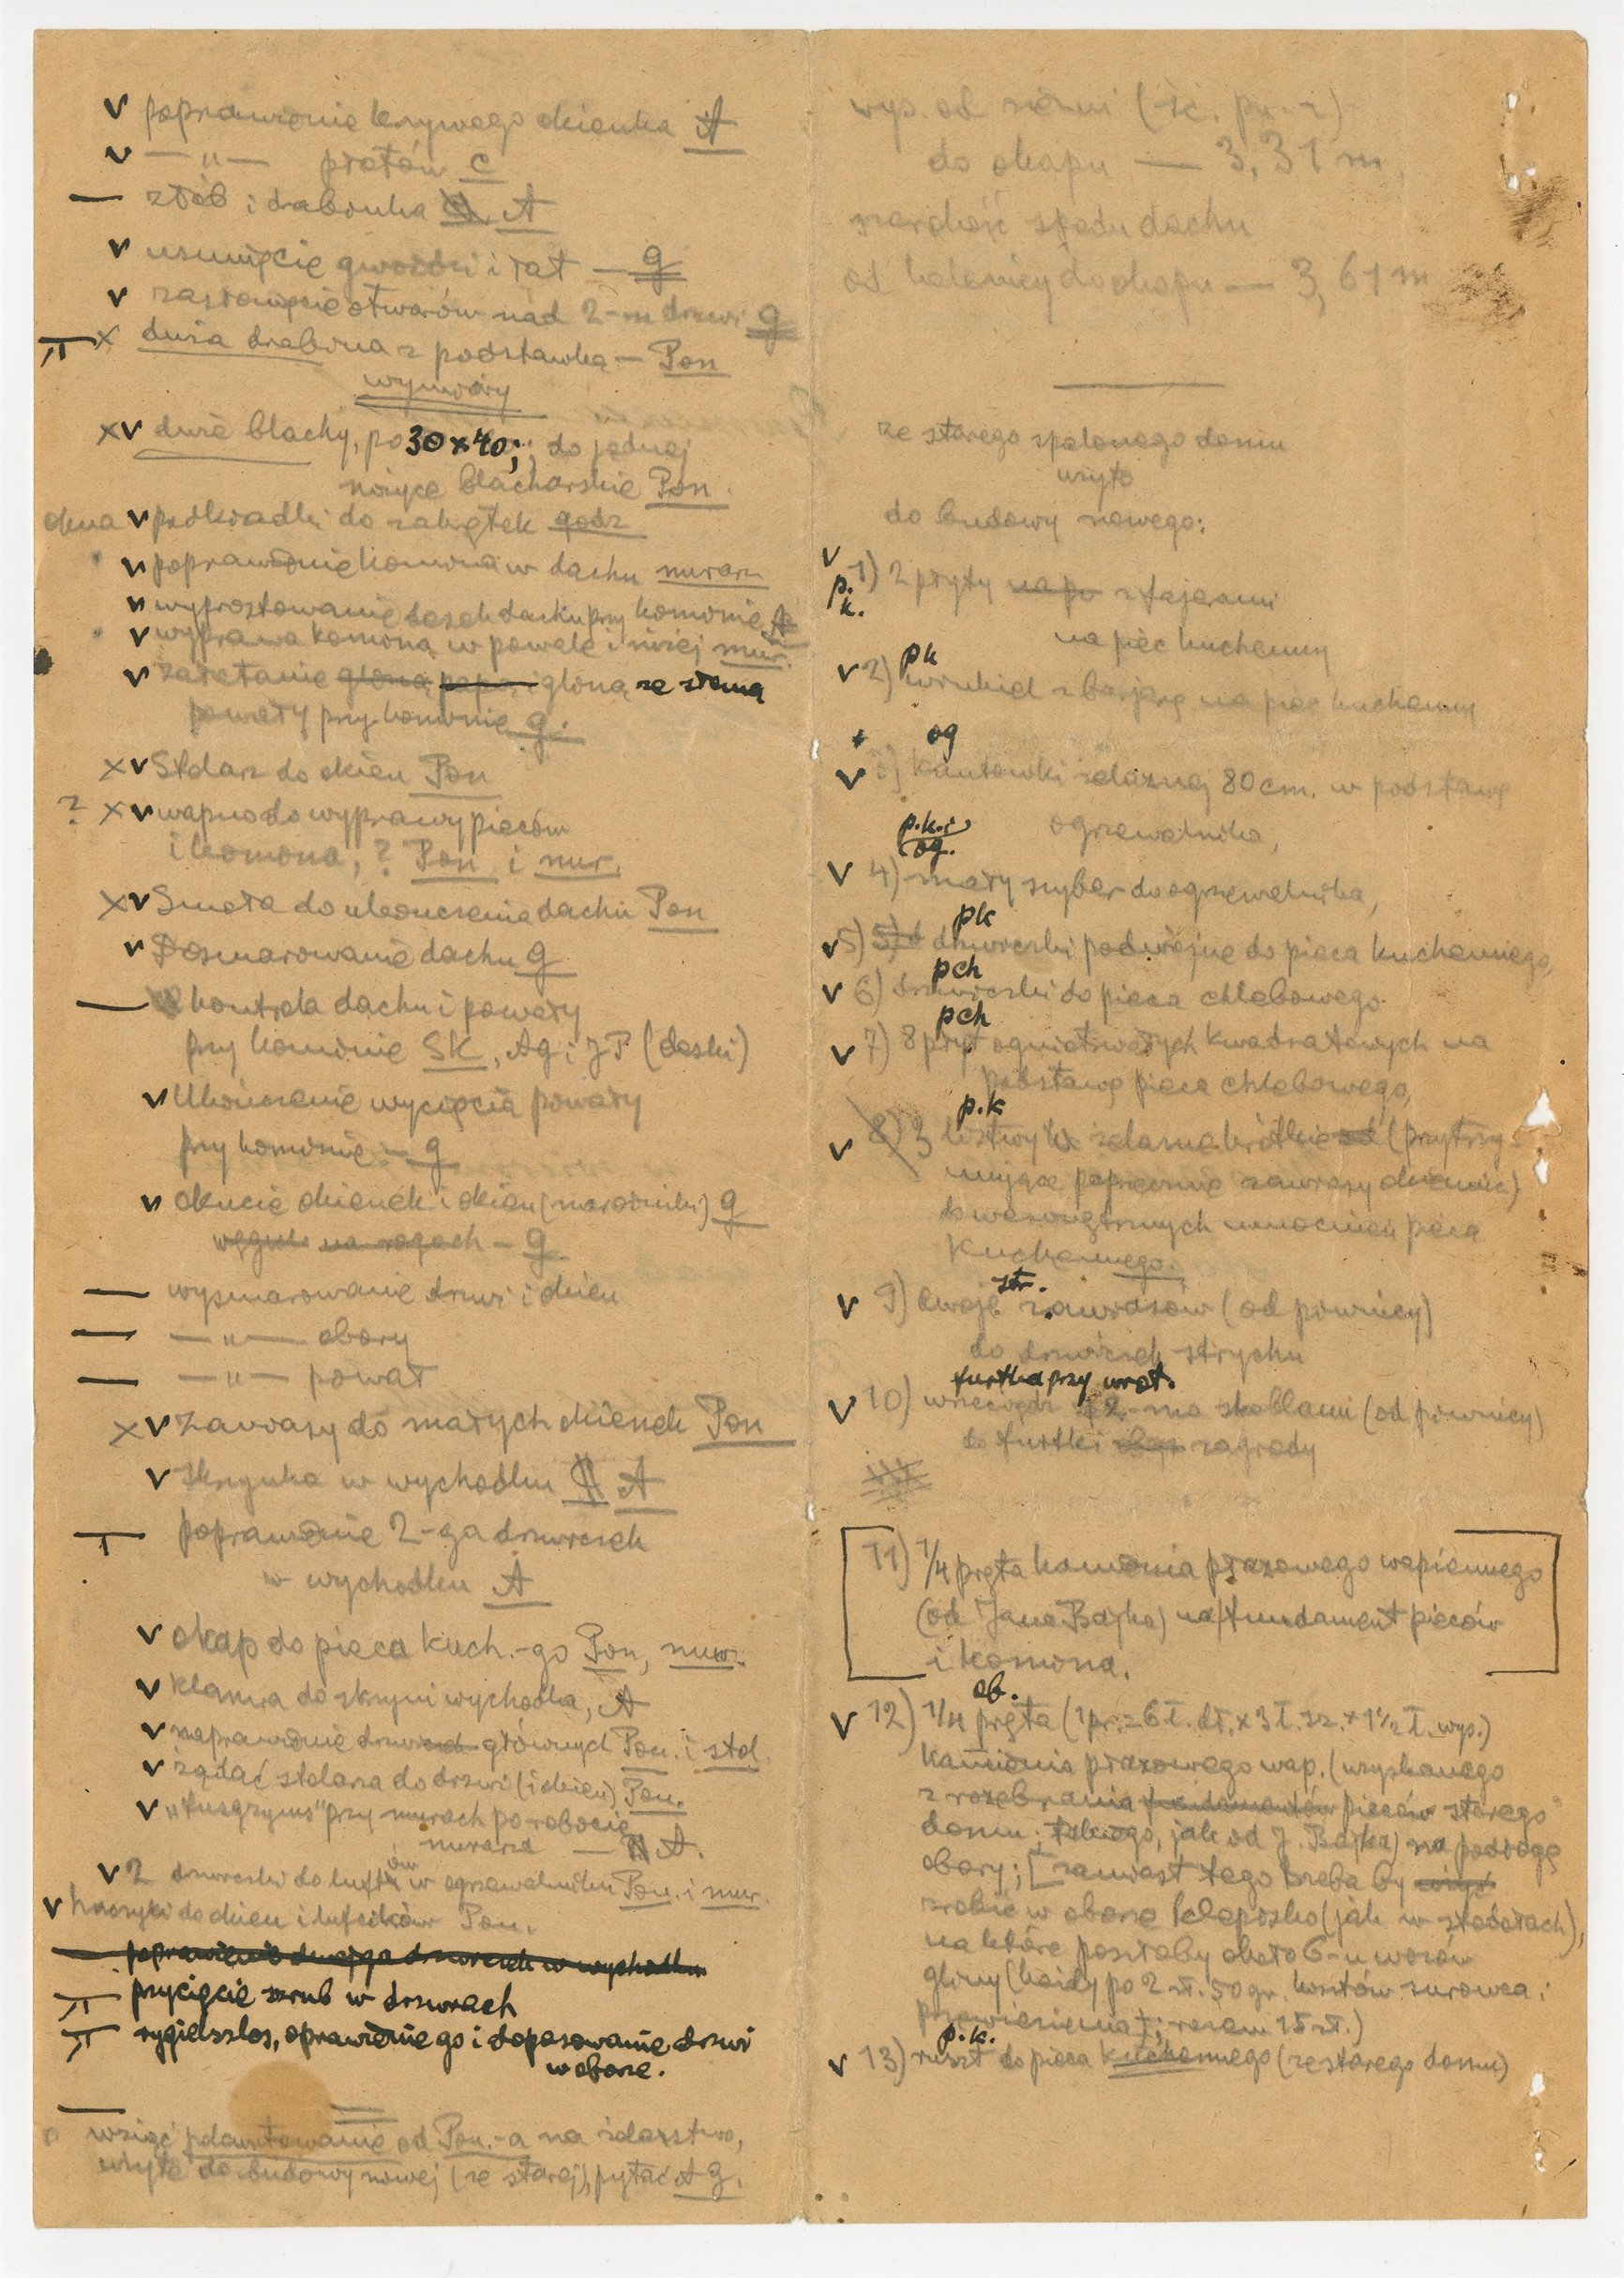 v poprawienie krzywego okienka A
v — „ — płotów C
— żłób i drabinka A
v usunięcie gwoździ i łat — g
v zasłonięcie otworów nad 2-m drzwi g
x duża drabina z podstawką — Pon
wymiary
xv duże blachy, po 30 x 40; do jednej
nożyce blacharskie Pon.
okna v podkładki do zakrętek godz
v poprawienie komina w dachu murarz
v wyprostowanie desek dachu przy kominie A
v wyprawa komina w powale i niżej mur.
v załatanie gliną papą i gliną ze słomą
powały przy kominie g.
xv Stolarz do okien Pon
? xv wapno do wyprawy pieców
i komina, ? Pon i mur.
xv Smoła do ukończenia dachu Pon
v Dosmarowanie dachu g
— kontrola dachu i powały
przy kominie SK, Ag i JP (deski)
v Ukończenie wycięcia powały
przy kominie — g
v okucie okienek i okien (narożniki) g
węgieł na rogach — g
— wysmarowanie drzwi i okien
— — „ — obory
— — „ — pował
xv zawiasy do małych okienek Pon
v skrzynka w wychodku A
poprawienie 2-ga drzwiczek
w wychodku A
v okap do pieca kuch.-go Pon, mur.
v klamra do skrzyni wychodka, A
v naprawienie drzwi głównych Pon. i stol.
v żądać stolarza do drzwi (i okien) Pon.
v przy murach po robocie
murarza — A.
v 2 drzwiczki do luftów w ogrzewalniku Pon. i mur.
v haczyki do okien i lufcików Pon.
— poprawienie dwojga drzwiczek w wychodku
przycięcie śrub w drzwiach
rygielszlos, oprawienie go i dopasowanie drzwi
w oborze.
wziąć pokwitowanie od Pon.-a na żelazstwo,
użyte do budowy nowej (ze starej), pytać A g.
wys. od ziemi
do okapu — 3,31 m
szerokość spadu dachu
od kalenicy do okapu — 3,61 m
ze starego spalonego domu
użyto
do budowy nowego:
v p. k. 1) 2 płyty na po z fajerami
na piec kuchenny
pk
v 2) na piec kuchenny
og
v 3) kantówki żelaznej 80 cm. w podstawę
ogrzewalnika,
p.k. i og.
v 4) mały szyber do ogrzewalnika,
pk
v 5) 5) d drzwiczki podwójne do pieca kuchennego,
pch
v 6) drzwiczki do pieca chlebowego.
pch
v 7) 8 płyt ogniotrwałych kwadratowych na
podstawę pieca chlebowego,
p.k
v 8) 3 listwy żelazne krótkie (przytrzy-
mujące poprzecznie zawiasy okiennic)
do wewnętrznych umocnień pieca
kuchennego.
str.
v 9) dwoje zawiasów (od piwnicy)
do drzwiczek strychu
furtka przy wrot.
v 10) wrzeciądz z 2-ma skoblami (od piwnicy)
do furtki zagrody
11) 1/4 pręta kamienia płazowego wapiennego
(od Jana Bajka) na fundament pieców
i komina.
ob.
v 12) 1/4 pręta (1 pr. = 6 ł. dł. x 3 ł. sz. x 1 1/2 ł. wys.)
kamienia płazowego wap. (uzyskanego
z rozebrania fundamentów pieców starego
domu; takiego, jak od J. Bajka) na podłogę
obory; [zamiast tego trzeba by
zrobić w oborze klepisko (jak w stodołach),
na które poszłoby około 6-u wozów
gliny (każdy po 2 zł. 50 gr. kosztów surowca i
przewiezienia]; razem 15 zł.)
p.k.
v 13) ruszt do pieca kuchennego (ze starego domu)